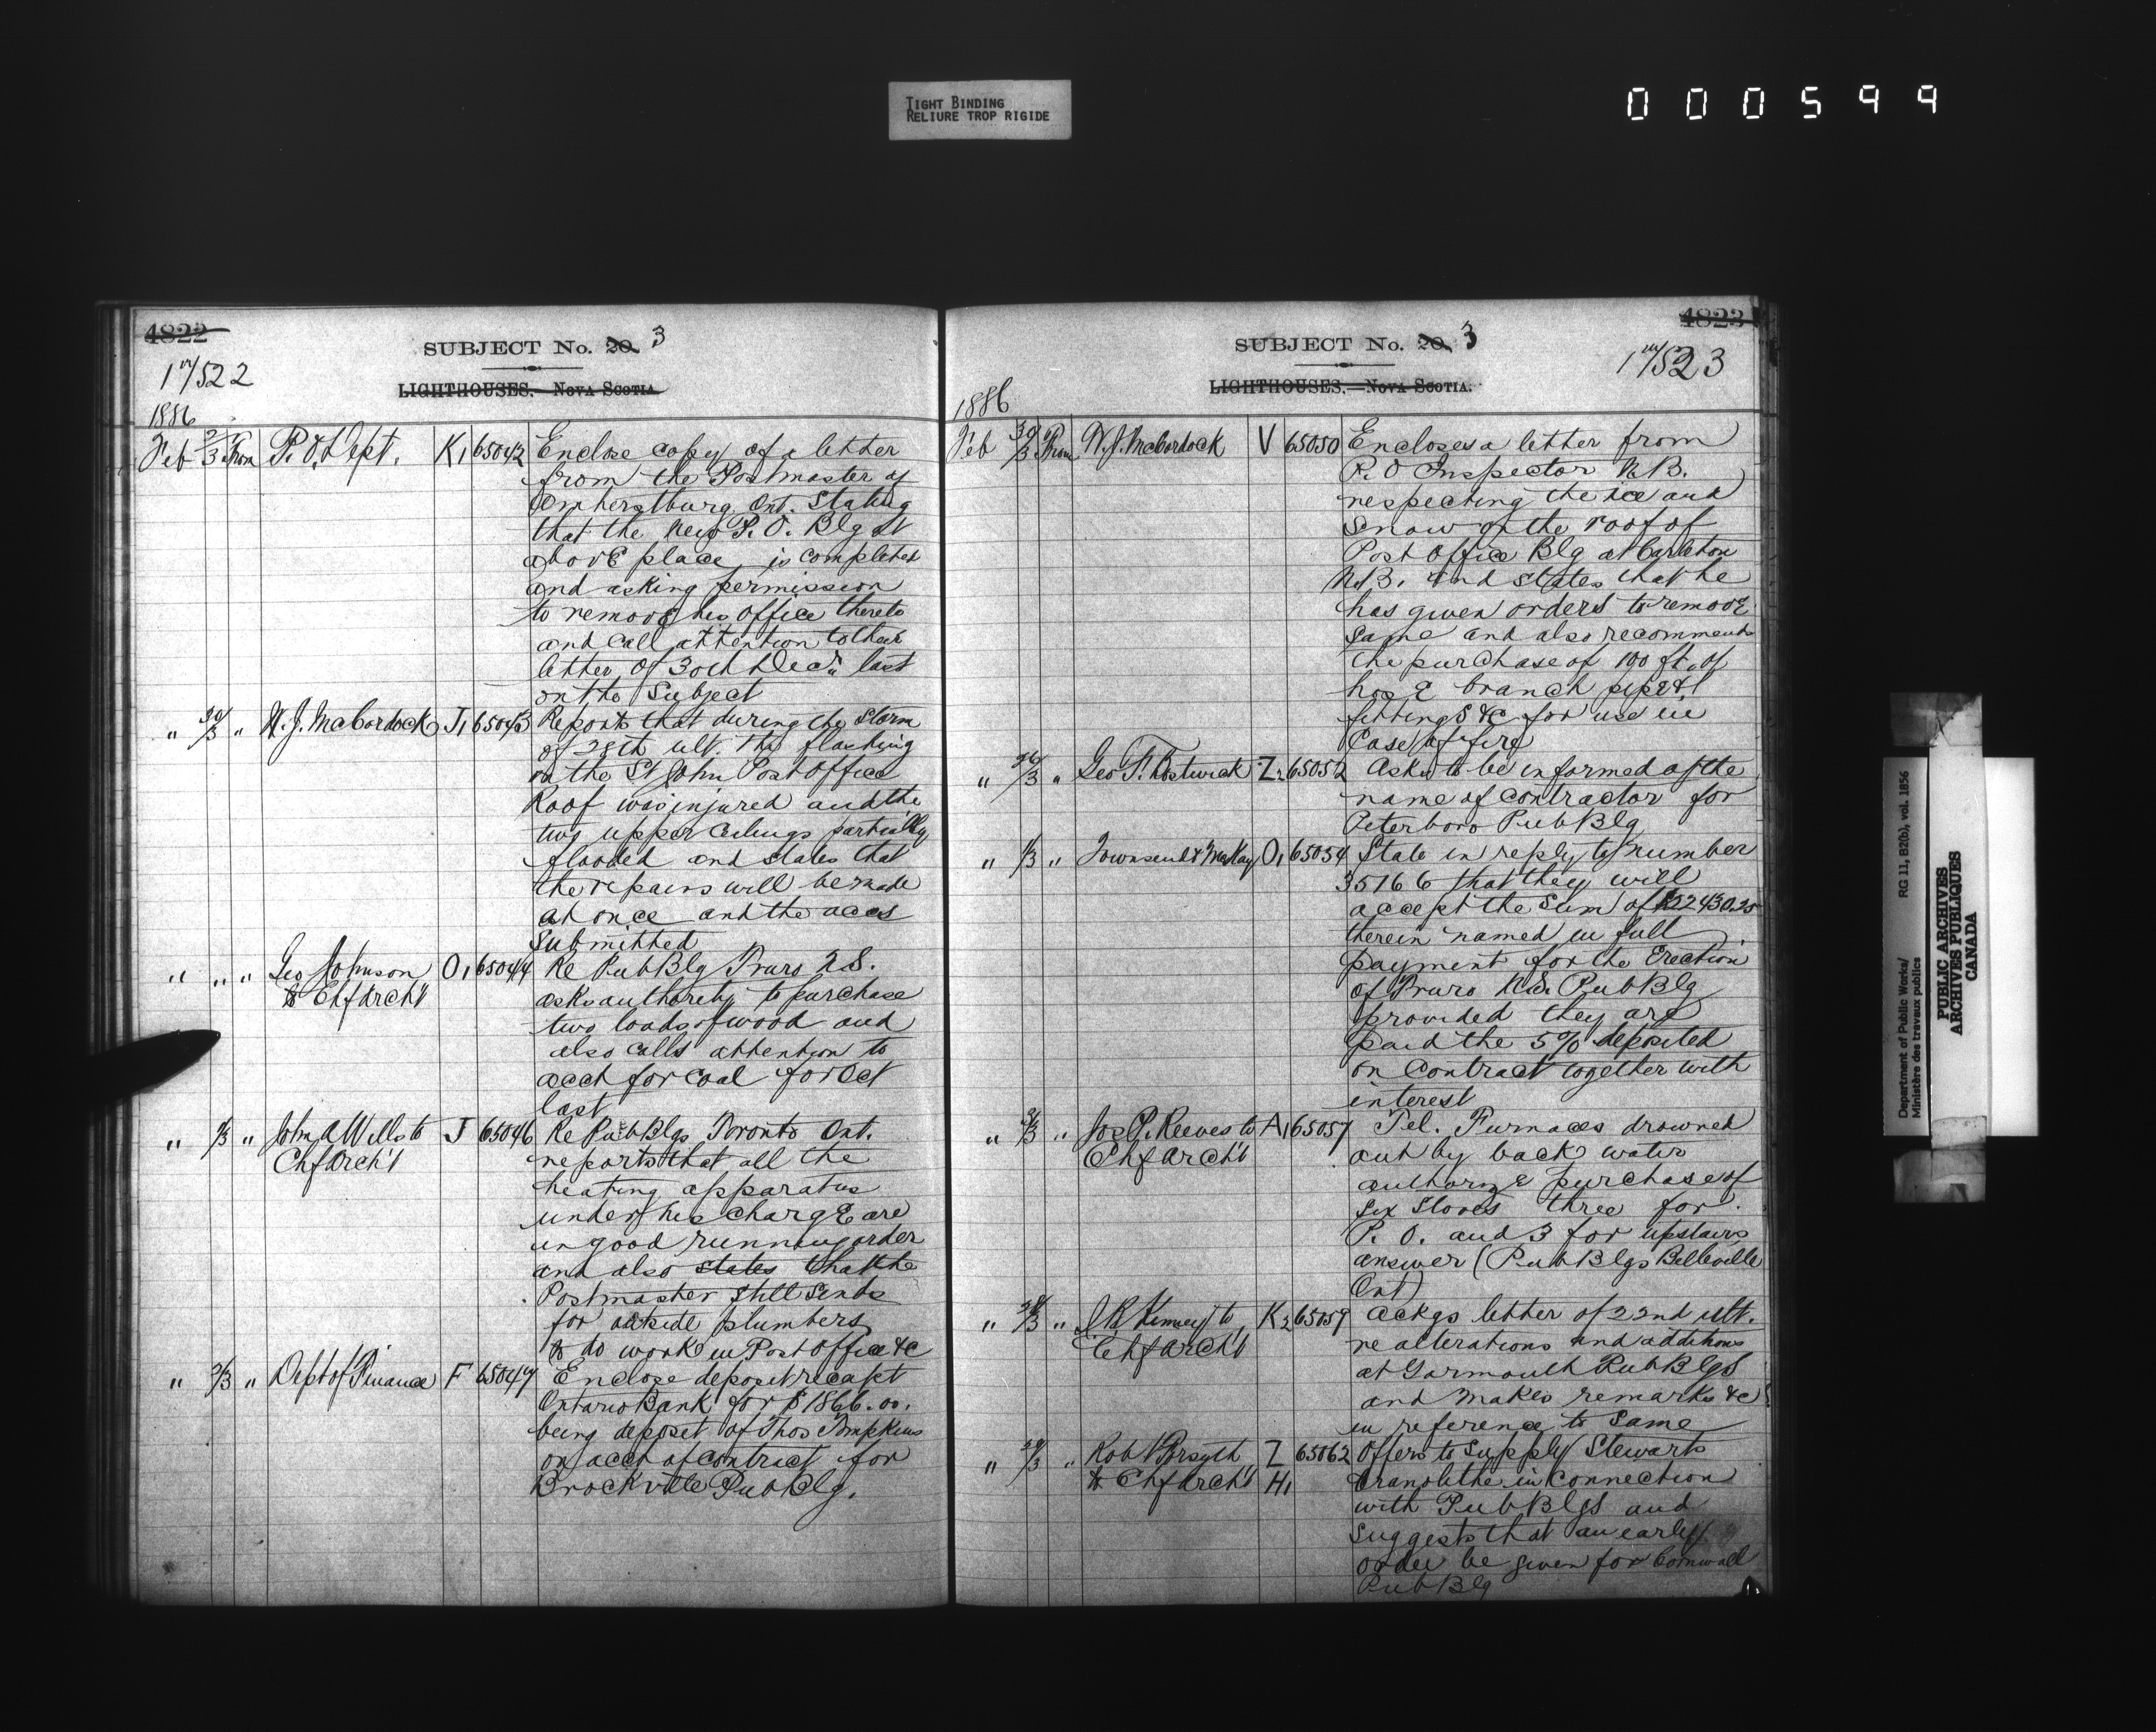 TIGHT BINDING
RELIURE TROP RIGIDE
000599
4822
SUBJECT No. 20. 3
17/522
LIGHTHOUSES. NOVA SCOTIA
1886
Feb 2/3 From P. O. Dept. K1 65042 Enclose copy of a letter
from the Postmaster of
Amherstburg Ont. Stating
that the New P. O. Blg at
above place is completed
and asking permission
to remove his office thereto
and call attention to their
letter of 30th Decr last
on the Subject
" 30/3 " W. J. McCordock J1 65043 Reports that during the Storm
of 28th ult. the flashing
on the St John Post Office
Roof was injured and the
two upper ceilings partially
flooded and states that
the repairs will be made
at once and the accs
Submitted
" " " Geo Johnson O1 65044 Re Pub Blg Truro N.S.
to Chf Arch't asks authority to purchase
two loads of wood and
also calls attention to
acct for coal for Oct
last
" 1/3 " John A Wills to J 65046 Re Pub Blgs Toronto Ont.
Chf Arch't reports that all the
heating apparatus
under his charge are
in good running order
and also states that the
Postmaster still sends
for outside plumbers
to do work in Post Office &c
" 2/3 " Dept of Finance F 65047 Enclose deposit receipt
Ontario Bank for $1866.00.
being deposit of Thos Tompkins
on acct of contract for
Brockville Pub Blg.
4823
SUBJECT No. 20. 3
17/523
LIGHTHOUSES.—NOVA SCOTIA.
1886
Feb 30/3 From W. J. McCordock V 65050 Encloses a letter from
P. O Inspector N.B.
respecting the ice and
Snow on the roof of
Post Office Blg at Carleton
N.B. and states that he
has given orders to remove
same and also recommends
the purchase of 100 ft. of
hose branch pipe &
fittings &c for use in
Case of fire
" 26/3 " Geo F. Bostwick Z2 65052 Asks to be informed of the
name of contractor for
Peterboro Pub Blg
" 1/3 " Townsend & McKay O1 65054 State in reply to number
35166 that they will
accept the Sum of $22430.25
therein named in full
payment for the Erection
of Truro N.S. Pub Blg
provided they are
paid the 5% deposited
on Contract together with
interest
" 2/3 " Jos P. Reeves to A1 65057 Tel. Furnaces drowned
Chf Arch't out by back water
authorize purchase of
six Stoves three for
P. O. and 3 for upstairs
answer (Pub Blgs Belleville
Ont)
" 28/3 " J R Kinney to K2 65059 ackgs letter of 22nd ult.
Chf Arch't re alterations and additions
at Yarmouth Pub Blgs
and makes remarks &c
in reference to Same
" 29/3 " Robt Forsyth Z 65062 Offers to supply Stewarts
to Chf Arch't H1 Granolithe in connection
with Pub Blgs and
suggests that an early
order be given for Cornwall
Pub Blg
Department of Public Works/ RG 11, B2(b), vol. 1856
Ministère des travaux publics
PUBLIC ARCHIVES
ARCHIVES PUBLIQUES
CANADA